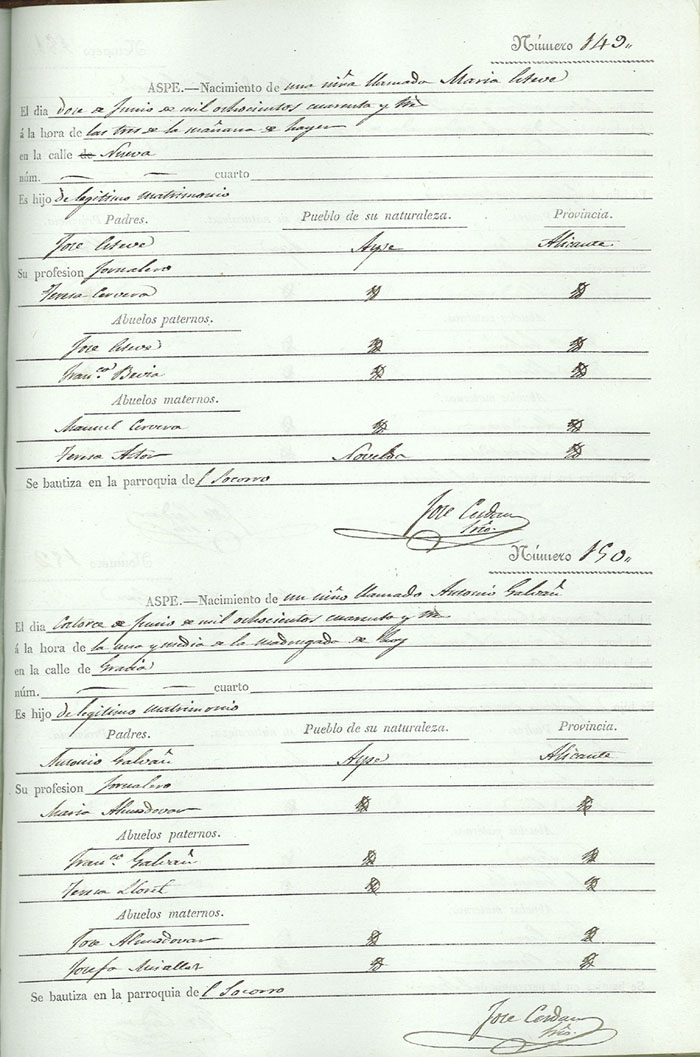 Número 149.,
ASPE.—Nacimiento de una niña llamada Maria Esteve
El dia doce de Junio de mil ochocientos cuarenta y tres
á la hora de las tres de la mañana de hayer
en la calle de Nueva
núm. — — cuarto
Es hijo de legitimo matrimonio
Padres. Pueblo de su naturaleza. Provincia.
Jose Esteve Aspe Alicante
Su profesion Jornalero
Teresa Cervera
Abuelos paternos.
Jose Esteve
Fran.ca Bevia
Abuelos maternos.
Manuel Cervera
Teresa Novelda
Se bautiza en la parroquia del Socorro
Jose Cerdan
Srio.
Número 150.,
ASPE.—Nacimiento de un niño llamado Antonio Galvañ
El dia Catorce de Junio de mil ochocientos cuarenta y tres
á la hora de la una y media de la madrugada de hoy
en la calle de Gracia
núm. — — cuarto
Es hijo de legitimo matrimonio
Padres. Pueblo de su naturaleza. Provincia.
Antonio Galvañ Aspe Alicante
Su profesion Jornalero
Maria Almodovar
Abuelos paternos.
Fran.co Galvañ
Teresa Lloret
Abuelos maternos.
Jose Almodovar
Josefa Miralles
Se bautiza en la parroquia del Socorro
Jose Cerdan
Srio.